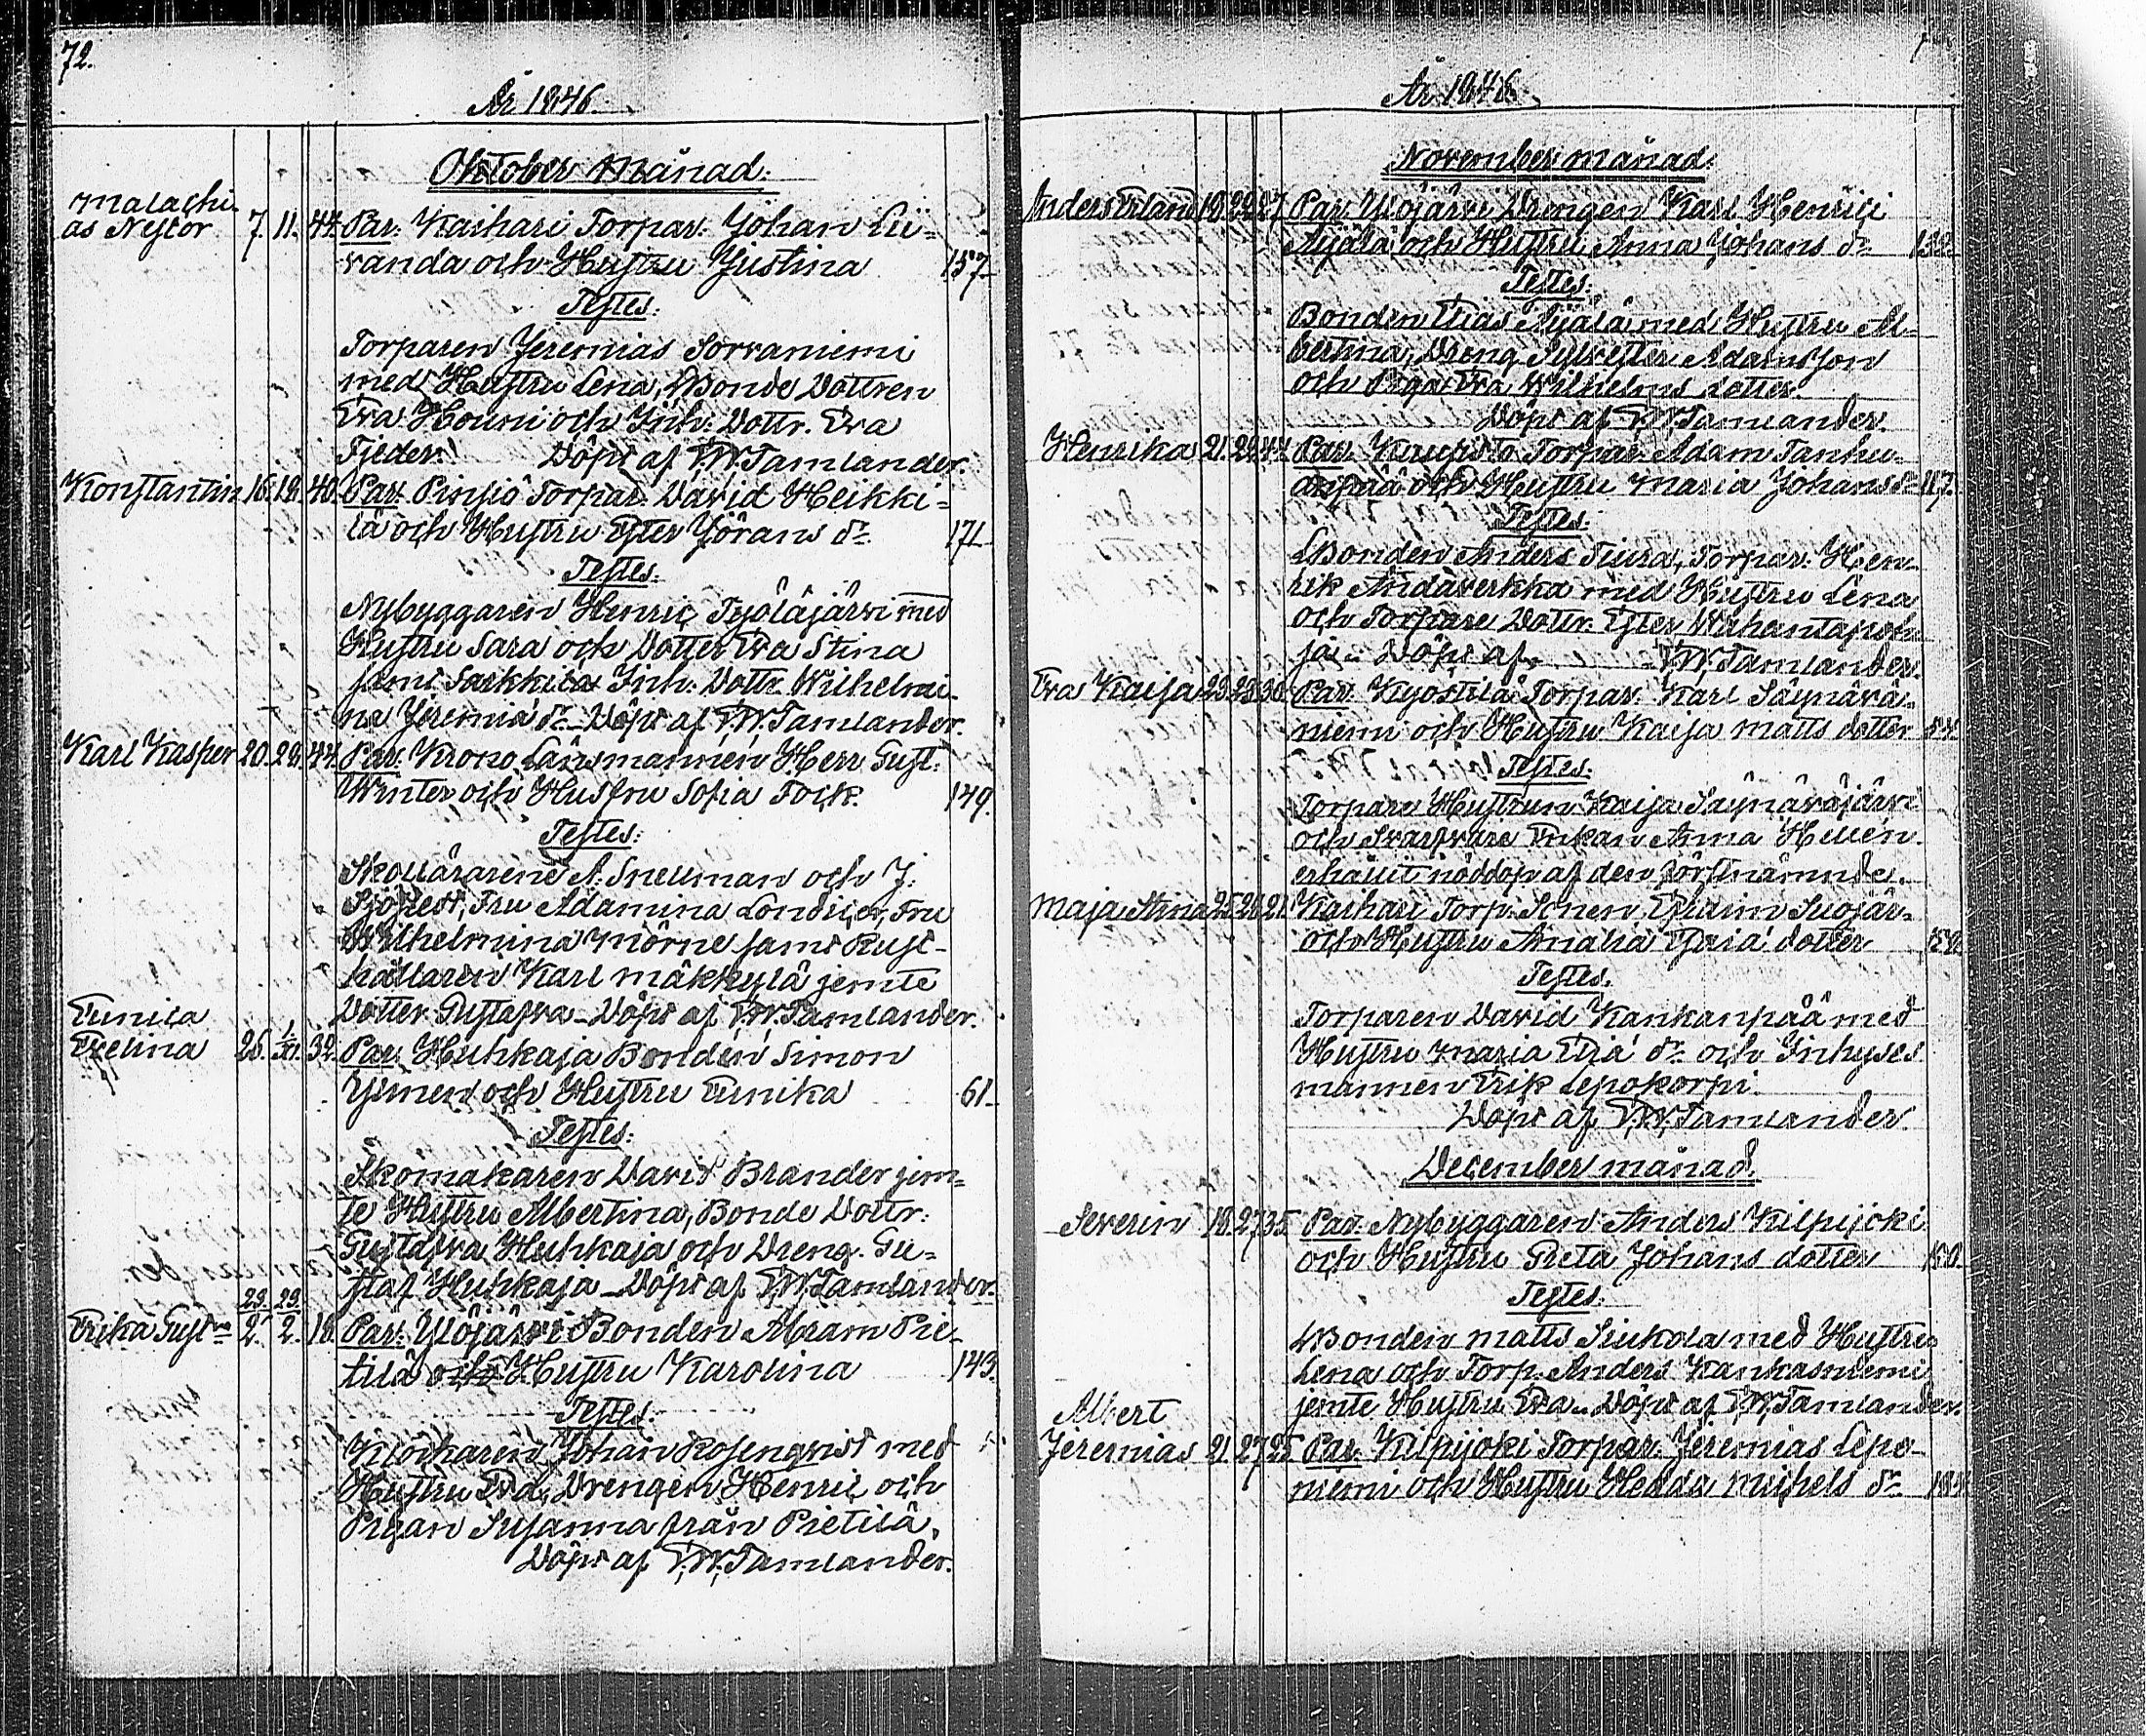 72.
År 1846.
Oktober Månad.
Malachi-
as Nestor 7. 11. 44. Par. Kaihari Torpar. Johan Lii-
vanda och Hustru Justina 157
Testes:
Torparen Jeremias Sorvaniemi
med Hustru Lena, Bonde Dottren
Eva Houni och Inh. Dottr. Eva
Fjeder. Döpt af F.W. Tamlander.
Konstantin 16. 18. 40. Par. Pinsiö Torpar. David Heikki-
lä och Hustru Ester Jörans dr. 171
Testes:
Nybyggaren Henric Tyôläjärvi med
Hustru Sara och Dotter Eva Stina
samt Sarkkila Inh. Dottr. Wilhelmi-
na Jeremiæ dr. Döpt af F.W. Tamlander.
Karl Kasper 20. 28. 44. Par. Krono Länsmannen Herr Gust.
Winter och Husfru Sofia Fock. 149.
Testes:
Skollärarene A. Snellman och J.
Sjöstedt, Fru Adamina Londicer, Fru
Wilhelmina Mörne samt Rust-
hållaren Karl Mäkkylä jemte
Dotter Gustafva Döpt af F.W. Tamlander.
Eunica
Evelina 26. 1/XI. 32. Par. Huhkaja Bonden Simon
Ylinen och Hustru Eunika 61
Testes:
Skomakaren David Brander jem-
te Hustru Albertina, Bonde Dottr.
Gustafva Huhkaja och Dreng. Gu-
staf Huhkaja Döpt af F.W. Tamlander.
29. 29.
Erika Gustva 2. 2. 18. Par. Ylöjärvi Bonden Abram Pie-
tilä och Hustru Karolina 143.
Testes:
Klockaren Johan Rosenqvist med
Hustru Eva, Drengen Henric och
Pigan Susanna från Pietilä.
Döpt af F.W. Tamlander.
År 1846.
November månad.
Anders Erland 19. 22. 27. Par. Ylöjärvi Drengen Karl Henrici
Äijälä och Hustru Anna Johans dr.
Testes:
Bonden Elias Äijälä med Hustru Al-
bertina, Dreng Sylvester Adamsson
och Piga Eva Wilhelms dotter.
Döpt af F.W. Tamlander.
Henrika 21. 24. 44. Par. Kaupisto Torpar. Adam Tanhu-
anpää och Hustru Maria Johans dr. 117.
Testes:
Bonden Anders Tiura, Torpar. Hen-
rik Andaverkka med Hustru Lena
och Torpare Dottr. Ester Wuhantapoh-
ja. Döpt af F.W. Tamlander.
Eva Kaija 23. 28. 30. Par. Kyöstilä Torpar. Karl Säynävä-
niemi och Hustru Kaija Matts dotter 54
Testes:
Torpare Hustrun Kaija Säynäväjärvi
och Svarfvare Enkan Anna Hellén.
erhållit nöddop af den förstnämnde.
Maja Stina 25. 28. 21. Kaihari Torp. Sonen Efraim Suojär-
och Hustru Amalia Esaiæ dotter
Testes:
Torparen David Kankanpää med
Hustru Maria Eliæ dr. och Inhyses
mannen Erik Lepokorpi.
Döpt af F.W. Tamlander.
December månad.
Severin 18. 27. 35. Par. Nybyggaren Anders Kilpijoki
och Hustru Greta Johans dotter
Testes:
Bonden Matts Siukola med Hustru
Lena och Torp. Anders Kankasniemi
jemte Hustru Eva. Döpt af F.W. Tamlander.
Albert
Jeremias 21. 27. 25. Par. Kilpijoki Torpar. Jeremias Lepo-
niemi och Hustru Hedda Michels dr.